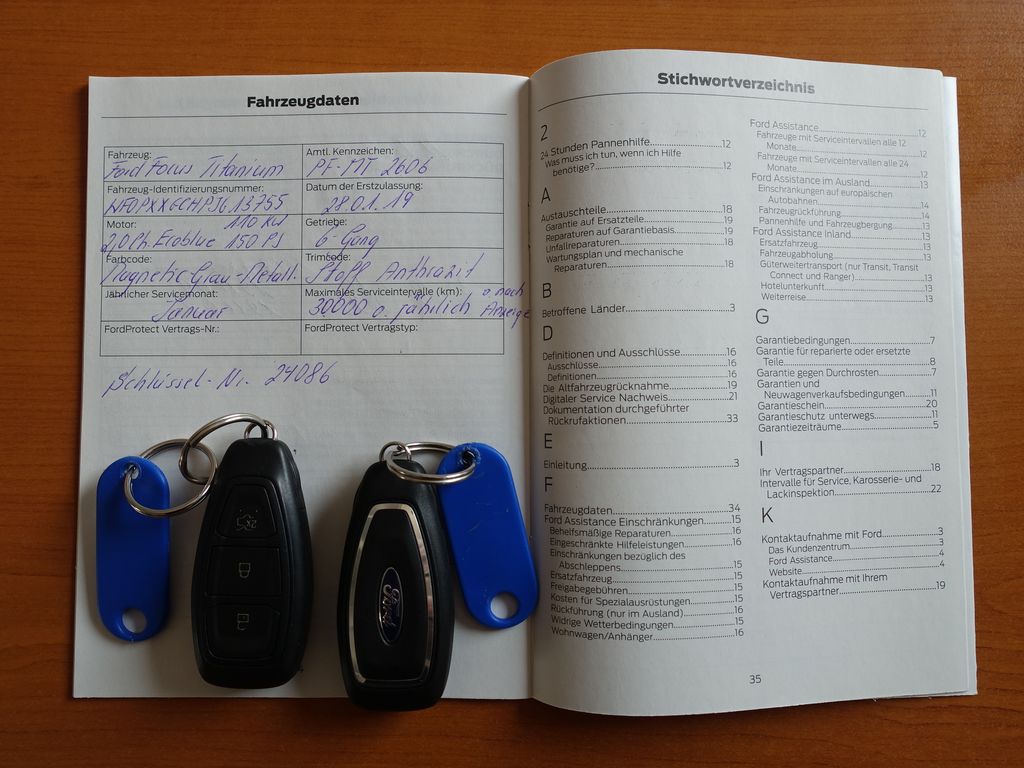 Fahrzeugdaten
Fahrzeug:
Ford Focus Titanium
Amtl. Kennzeichen:
PF-MT 2606
Fahrzeug-Identifizierungsnummer:
WF0PXXGCHPJG13755
Datum der Erstzulassung:
28.01.19
Motor: 110 KW
2,0 Ph. Eroblue 150 PS
Getriebe:
6-Gang
Farbcode:
Magnetic Grau-Metall.
Trimcode:
Stoff Anthrazit
Jährlicher Servicemonat:
Januar
Maximales Serviceintervalle (km):
30000 o. jährlich o. nach Anzeige
FordProtect Vertrags-Nr.:
FordProtect Vertragstyp:
Schlüssel-Nr. 24086
Ford
2x
Stichwortverzeichnis
2
24 Stunden Pannenhilfe.....12
Was muss ich tun, wenn ich Hilfe
benötige?.....12
A
Austauschteile.....18
Garantie auf Ersatzteile.....19
Reparaturen auf Garantiebasis.....19
Unfallreparaturen.....18
Wartungsplan und mechanische
Reparaturen.....18
B
Betroffene Länder.....3
D
Definitionen und Ausschlüsse.....16
Ausschlüsse.....16
Definitionen.....16
Die Altfahrzeugrücknahme.....19
Digitaler Service Nachweis.....21
Dokumentation durchgeführter
Rückrufaktionen.....33
E
Einleitung.....3
F
Fahrzeugdaten.....34
Ford Assistance Einschränkungen.....15
Behelfsmäßige Reparaturen.....16
Eingeschränkte Hilfeleistungen.....16
Einschränkungen bezüglich des
Abschleppens.....15
Ersatzfahrzeug.....15
Freigabegebühren.....15
Kosten für Spezialausrüstungen.....15
Rückführung (nur im Ausland).....16
Widrige Wetterbedingungen.....15
Wohnwagen/Anhänger.....16
Ford Assistance.....12
Fahrzeuge mit Serviceintervallen alle 12
Monate.....12
Fahrzeuge mit Serviceintervallen alle 24
Monate.....12
Ford Assistance im Ausland.....13
Einschränkungen auf europäischen
Autobahnen.....14
Fahrzeugrückführung.....14
Pannenhilfe und Fahrzeugbergung.....13
Ford Assistance Inland.....13
Ersatzfahrzeug.....13
Fahrzeugabholung.....13
Güterweitertransport (nur Transit, Transit
Connect und Ranger).....13
Hotelunterkunft.....13
Weiterreise.....13
G
Garantiebedingungen.....7
Garantie für reparierte oder ersetzte
Teile.....8
Garantie gegen Durchrosten.....7
Garantien und
Neuwagenverkaufsbedingungen.....11
Garantieschein.....20
Garantieschutz unterwegs.....11
Garantiezeiträume.....5
I
Ihr Vertragspartner.....18
Intervalle für Service, Karosserie- und
Lackinspektion.....22
K
Kontaktaufnahme mit Ford.....3
Das Kundenzentrum.....3
Ford Assistance.....4
Website.....4
Kontaktaufnahme mit Ihrem
Vertragspartner.....19
35